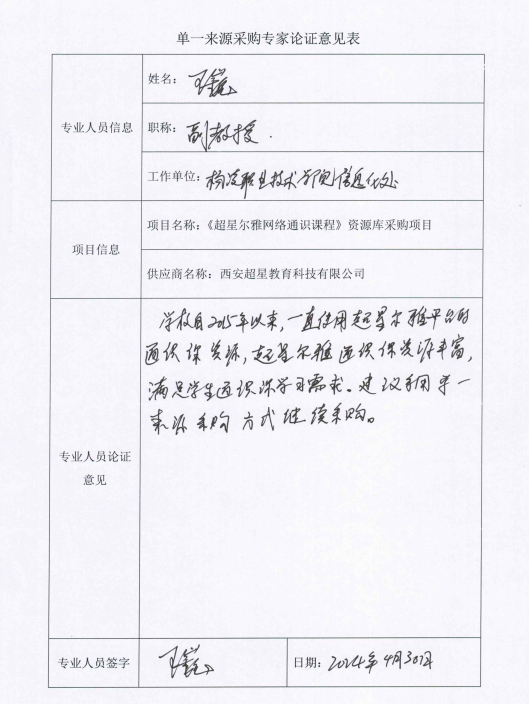 单一来源采购专家论证意见表
姓名：王
专业人员信息
职称：副教授.
工作单位：杨凌职业技术学院信息化处
项目信息
项目名称：《超星尔雅网络通识课程》资源库采购项目
供应商名称：西安超星教育科技有限公司
学校自2015年以来，一直使用超星尔雅平台的
通识课资源，超星尔雅通识课资源丰富，
满足学生通识课学习需求。建议利用单一
来源采购方式继续采购。
专业人员论证
意见
专业人员签字
王
日期：2024年4月30日